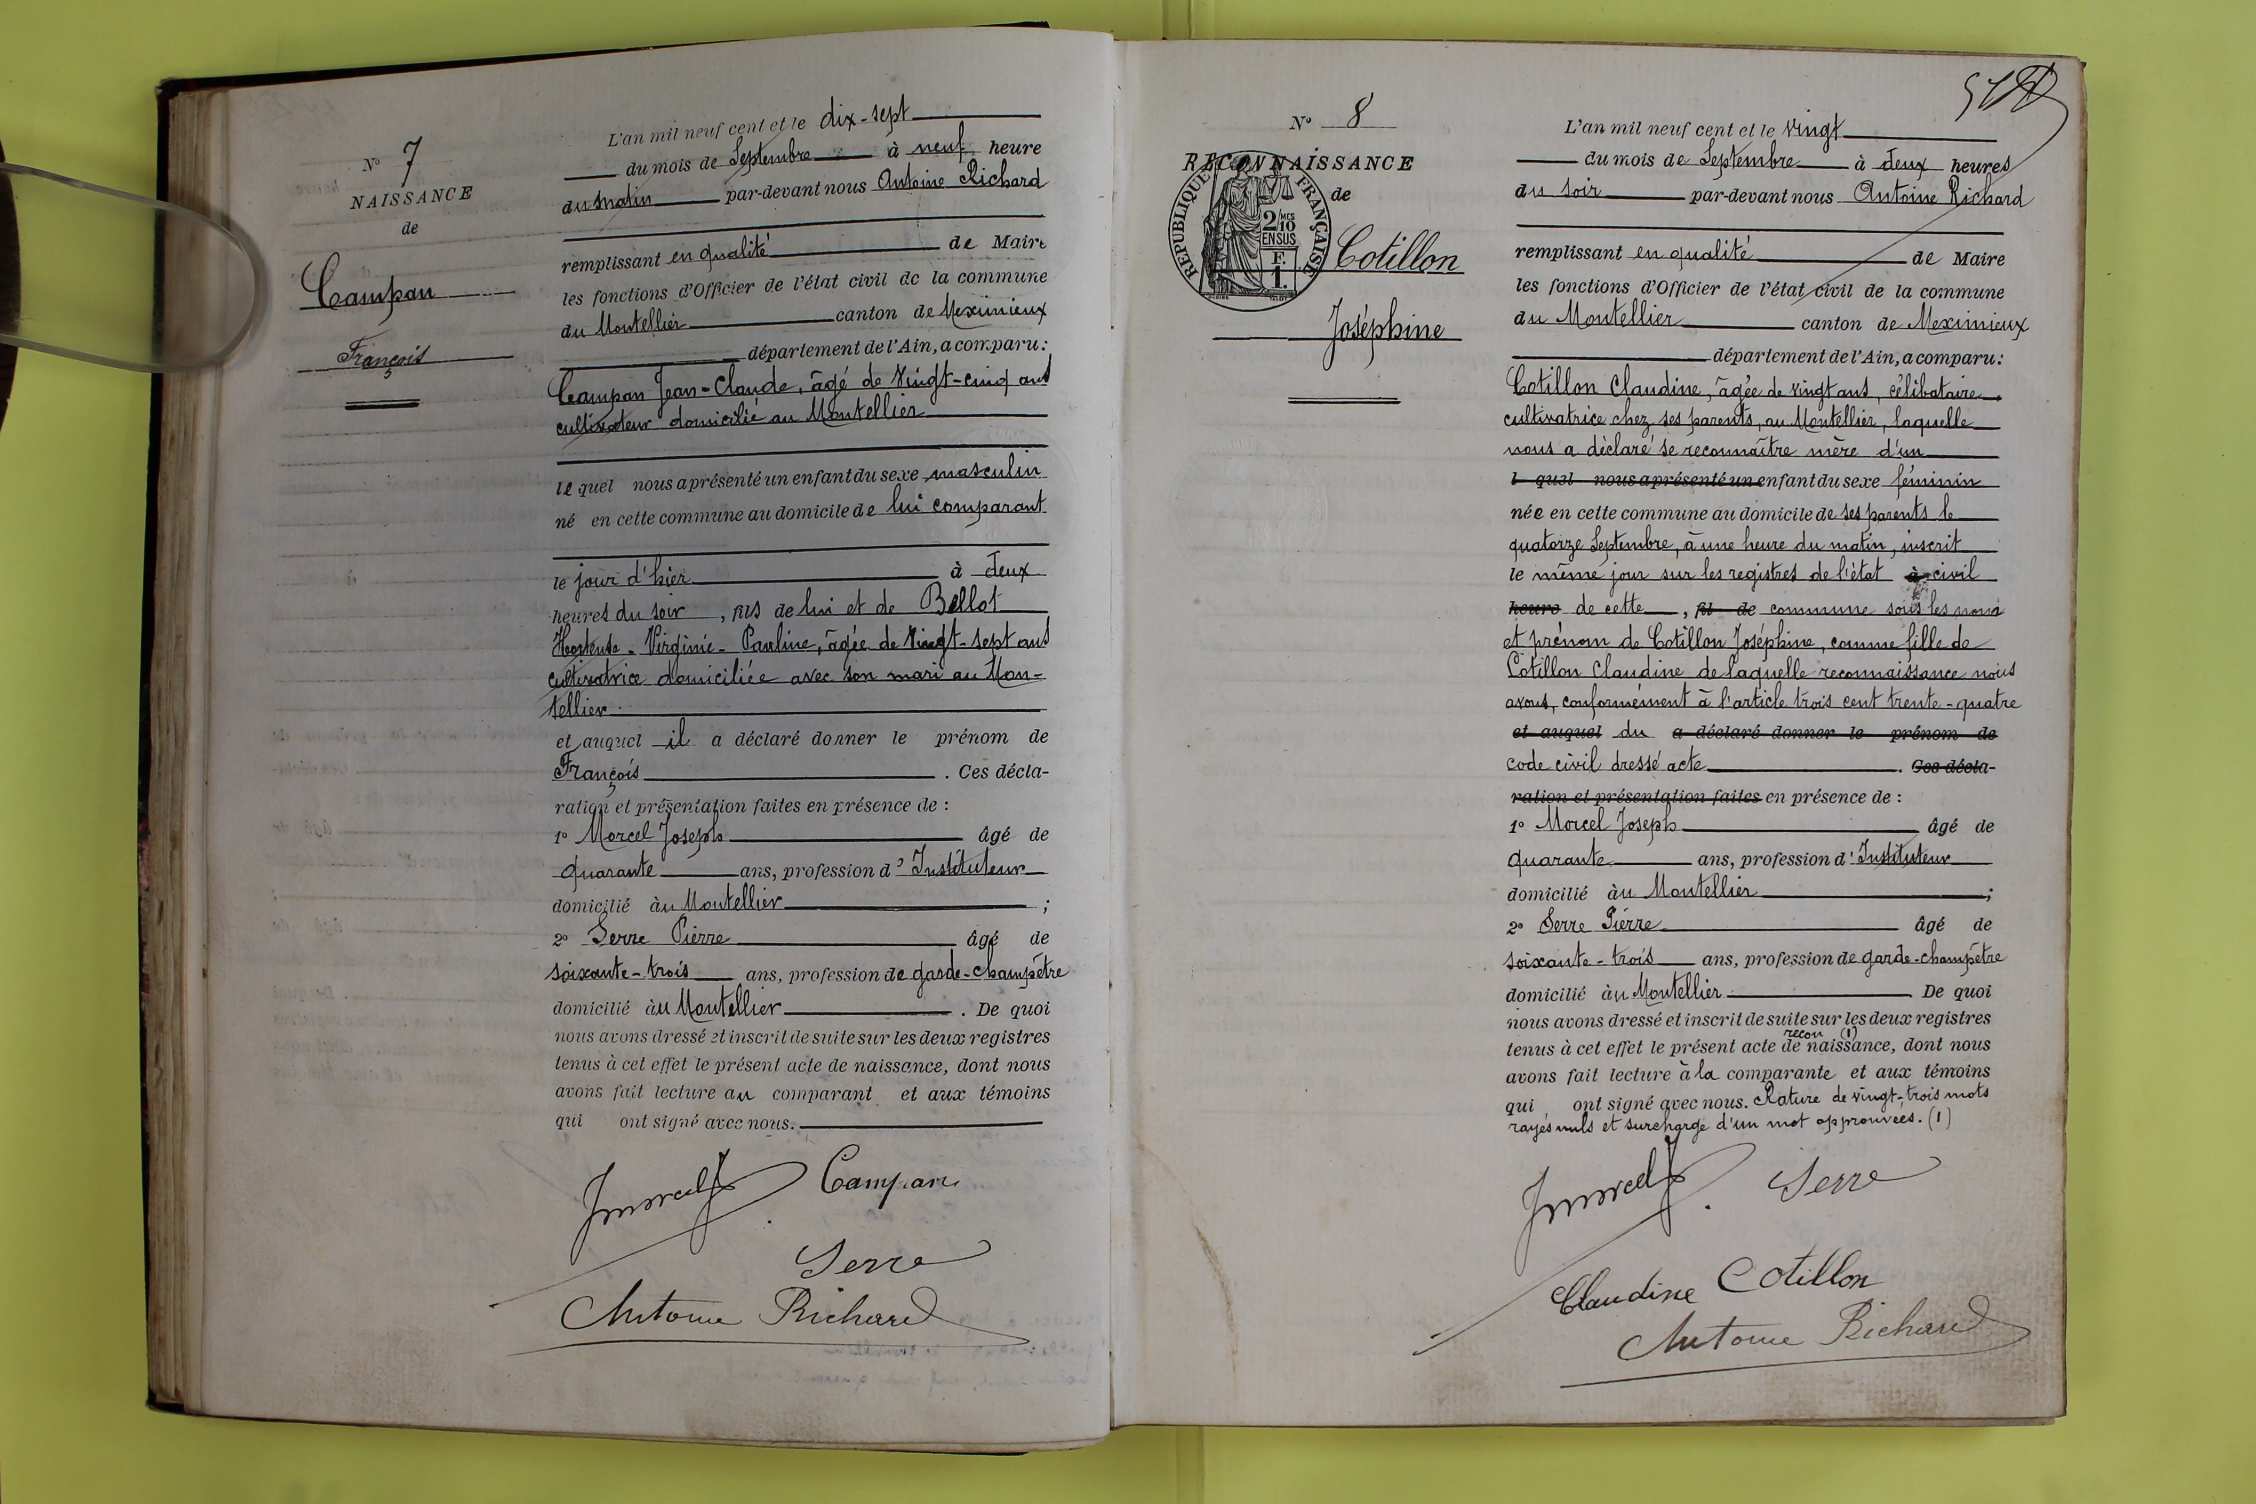 N° 7
NAISSANCE
de
Campan
François
L'an mil neuf cent et le dix-sept
du mois de Septembre à neuf heure
du matin par-devant nous Antoine Richard
remplissant en qualité de Maire
les fonctions d'Officier de l'état civil de la commune
du Montellier canton de Meximieux
département de l'Ain, a comparu:
Campan Jean-Claude, âgé de vingt-cinq ans
cultivateur domicilié au Montellier
lequel nous a présenté un enfant du sexe masculin
né en cette commune au domicile de lui comparant
le jour d'hier à deux
heures du soir, fils de lui et de Bellot
Hortense-Virginie-Pauline, âgée de vingt-sept ans
cultivatrice domiciliée avec son mari au Mon-
tellier
et auquel il a déclaré donner le prénom de
François. Ces décla-
ration et présentation faites en présence de :
1° Morcel Joseph âgé de
quarante ans, profession d'Instituteur
domicilié au Montellier ;
2° Serre Pierre âgé de
soixante-trois ans, profession de garde-champêtre
domicilié au Montellier. De quoi
nous avons dressé et inscrit de suite sur les deux registres
tenus à cet effet le présent acte de naissance, dont nous
avons fait lecture au comparant et aux témoins
qui ont signé avec nous.
JMorcel Campan
Serre
Antoine Richard
N° 8
RECONNAISSANCE
de
REPUBLIQUE FRANÇAISE
2/10 MES
EN SUS
F.
1.
Cotillon
Joséphine
L'an mil neuf cent et le vingt
du mois de Septembre à deux heures
du soir par-devant nous Antoine Richard
remplissant en qualité de Maire
les fonctions d'Officier de l'état civil de la commune
du Montellier canton de Meximieux
département de l'Ain, a comparu:
Cotillon Claudine, âgée de vingt ans, célibataire,
cultivatrice chez ses parents, au Montellier, laquelle
nous a déclaré se reconnaître mère d'un
l quel nous a présenté un enfant du sexe féminin
née en cette commune au domicile de ses parents le
quatorze Septembre, à une heure du matin, inscrit
le même jour sur les registres de l'état à civil
heure de cette, fil de commune sous les nom
et prénom de Cotillon Joséphine, comme fille de
Cotillon Claudine de laquelle reconnaissance nous
avons, conformément à l'article trois cent trente-quatre
et auquel du a déclaré donner le prénom de
code civil dressé acte. Ces décla-
ration et présentation faites en présence de :
1° Morcel Joseph âgé de
quarante ans, profession d'Instituteur
domicilié au Montellier ;
2° Serre Pierre âgé de
soixante-trois ans, profession de garde-champêtre
domicilié au Montellier. De quoi
nous avons dressé et inscrit de suite sur les deux registres
recon (1)
tenus à cet effet le présent acte de naissance, dont nous
avons fait lecture à la comparante et aux témoins
qui ont signé avec nous. Rature de vingt-trois mots
rayés nuls et surcharge d'un mot approuvées. (1)
JMorcel Serre
Claudine Cotillon
Antoine Richard